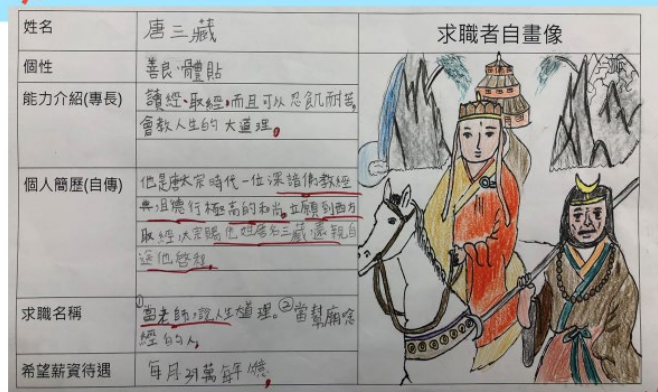 姓名
唐三藏
求職者自畫像
個性
善良、體貼
能力介紹(專長)
讀經、取經,而且可以忍飢耐苦,
會教人生的大道理。
個人簡歷(自傳)
他是唐太宗時代一位深諳佛教經
典且德行極高的和尚。立願到西方
取經,太宗賜他姓唐名三藏,還親自
送他啓程。
求職名稱
①當老師,説人生大道理。②當幫廟唸
經的人。
希望薪資待遇
每月
萬